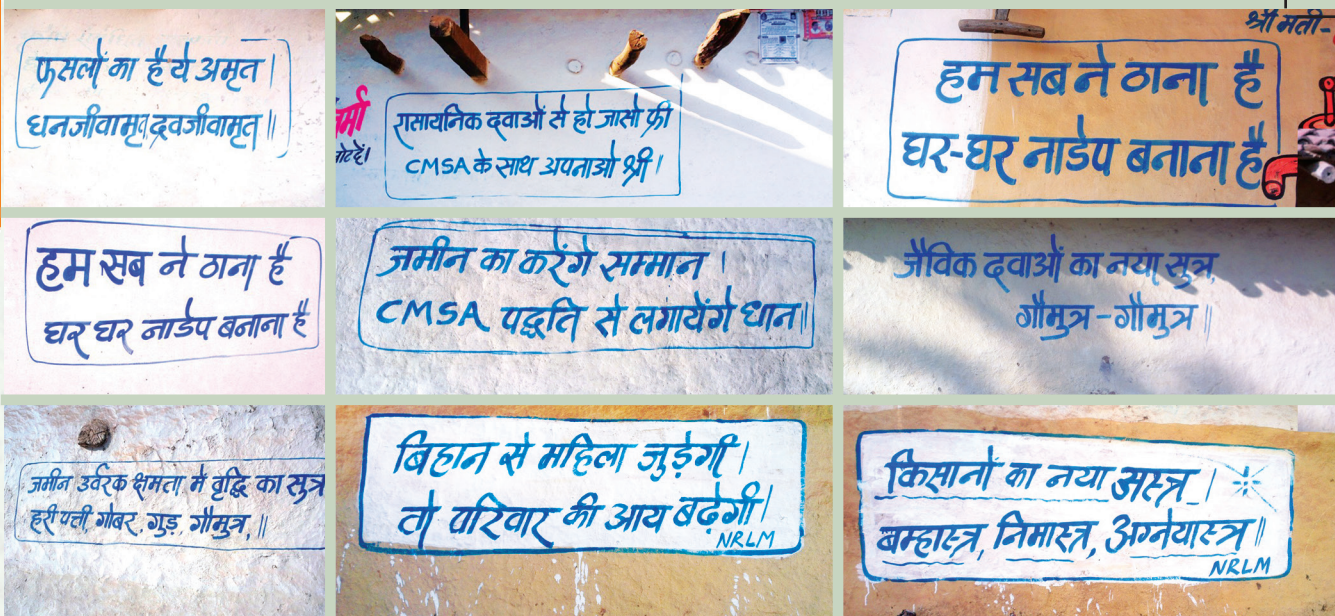 फसलों का है ये अमृत।
घनजीवामृत द्रवजीवामृत॥
रासायनिक दवाओं से हो जासो फ्री
CMSA के साथ अपनाओ श्री।
श्री मती-
हम सब ने ठाना है
घर-घर नाडेप बनाना है
हम सब ने ठाना है
घर घर नाडेप बनाना है
जमीन का करेंगे सम्मान।
CMSA पद्धति से लगायेंगे धान॥
जैविक दवाओं का नया सुत्र
गौमुत्र-गौमुत्र॥
जमीन उर्वरक क्षमता मे वृद्धि का सुत्र
हरी पत्ती गोबर, गुड़, गौमुत्र,॥
बिहान से महिला जुड़ेगी।
तो परिवार की आय बढ़ेगी।
NRLM
किसानों का नया अस्त्र।
बम्हास्त्र, निमास्त्र, अग्नेयास्त्र॥
NRLM